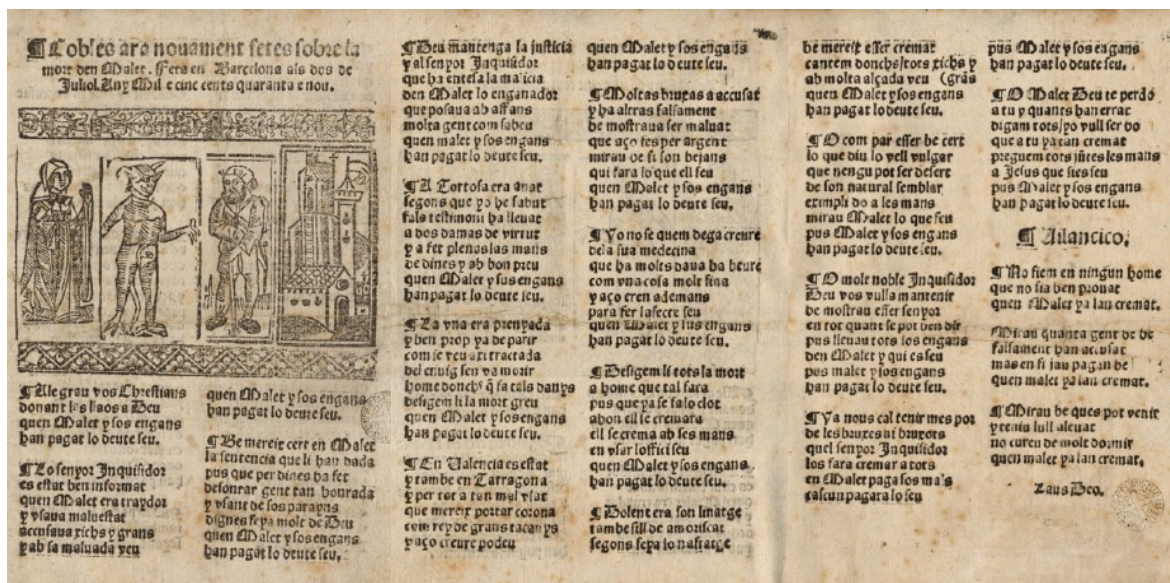 ¶ Cobles ara nouament fetes sobre la
mort den Malet. Fera en Barcelona als dos de
Juliol. Any Mil e cinc cents quaranta e nou.
¶ Alegrau vos Chrestians
donant los llaos a Deu
quen Malet y sos engans
han pagat lo deute seu.
¶ Lo senyor Inquisidor
es estat ben informat
quen Malet era traydor
y vsaua maluestat
accusaua richs y grans
y ab sa maluada veu
quen Malet y sos engans
han pagat lo deute seu.
¶ Be mereix cert en Malet
la sentencia que li han dada
pus que per dines ha fet
desonrar gent tan honrada
y vsant de sos parayns
dignes seya molt de Deu
quen Malet y sos engans
han pagat lo deute seu.
¶ Deu mantenga la justicia
y al senyor Inquisidor
que ha entesa la malicia
den Malet lo enganador
que posaua ab affans
molta gent com sabeu
quen malet y sos engans
han pagat lo deute seu.
¶ A Tortosa era anat
segons que yo he sabut
fals testimoni ha lleuat
a dos damas de virtut
y a fet plenas las mans
de dines y ab bon preu
quen Malet y sos engans
han pagat lo deute seu.
¶ La vna era prenyada
y ben prop ya de parir
com se veu axi tractada
del enuig sen va morir
home donchs q̃ fa tals danys
desigem li la mort greu
quen Malet y sos engans
han pagat lo deute seu.
¶ En Valencia es estat
y tambe en Tarragona
y per tot a tan mal vsat
que mereix portar corona
com rey de grans tacanys
y aço creure podeu
quen Malet y sos engans
han pagat lo deute seu.
¶ Moltas bruxas a accusat
y ha altras falsament
be mostraua ser maluat
que aço fes per argent
mirau be si son bejans
qui fara lo que ell feu
quen Malet y sos engans
han pagat lo deute seu.
¶ Yo no se quem dega creure
de la sua medecina
que ha molts daua ha beure
com vna cosa molt fina
y aço eren ademans
para fer la fecte seu
quen Malet y sus engans
han pagat lo deute seu.
¶ Desigem li tots la mort
a home que tal fara
pus que ya se fa lo clot
abon ell le cremara
ell se crema ab ses mans
en vsar loffici seu
quen Malet y sos engans
han pagat lo deute seu.
¶ Dolent era son linatge
tambe fill de amoriscat
segons feya lo
be mereix esser cremat
cantem donchs tots richs y
ab molta alçada veu (grãs
quen Malet y sos engans
han pagat lo deute seu.
¶ O com par esser be cert
lo que diu lo vell vulgar
que nengu pot ser desert
de son natural semblar
eximpli do a les mans
mirau Malet lo que feu
pus Malet y sos engans
han pagat lo deute seu.
¶ O molt noble Inquisidor
Deu vos vulla mantenir
be mostrau esser senyor
en tot quant se pot ben dir
pus lleuau tots los engans
den Malet y qui es seu
pus malet y sos engans
han pagat lo deute seu.
¶ Ya nous cal tenir mes por
de les bruxes ni bruxots
quel senyor Inquisidor
los fara cremar a tots
en Malet paga sos mals
cascun pagara lo seu
pus Malet y sos engans
han pagat lo deute seu.
¶ O Malet Deu te perdó
a tu y quants han errat
digam tots yo vull ser bo
que a tu ya tan cremat
preguem tots jũtes les mans
a Jesus que sies seu
pus Malet y sos engans
han pagat lo deute seu.
¶ Vilancico.
¶ No fiem en ningun home
que no sia ben prouat
quen Malet ya lan cremat.
Mirau quanta gent de be
falsament han accusat
mas en fi jau pagan be
quen malet ya lan cremat.
¶ Mirau be ques pot venir
y teniu lull aleuat
no cureu de molt dormir
quen malet ya lan cremat.
Laus Deo.